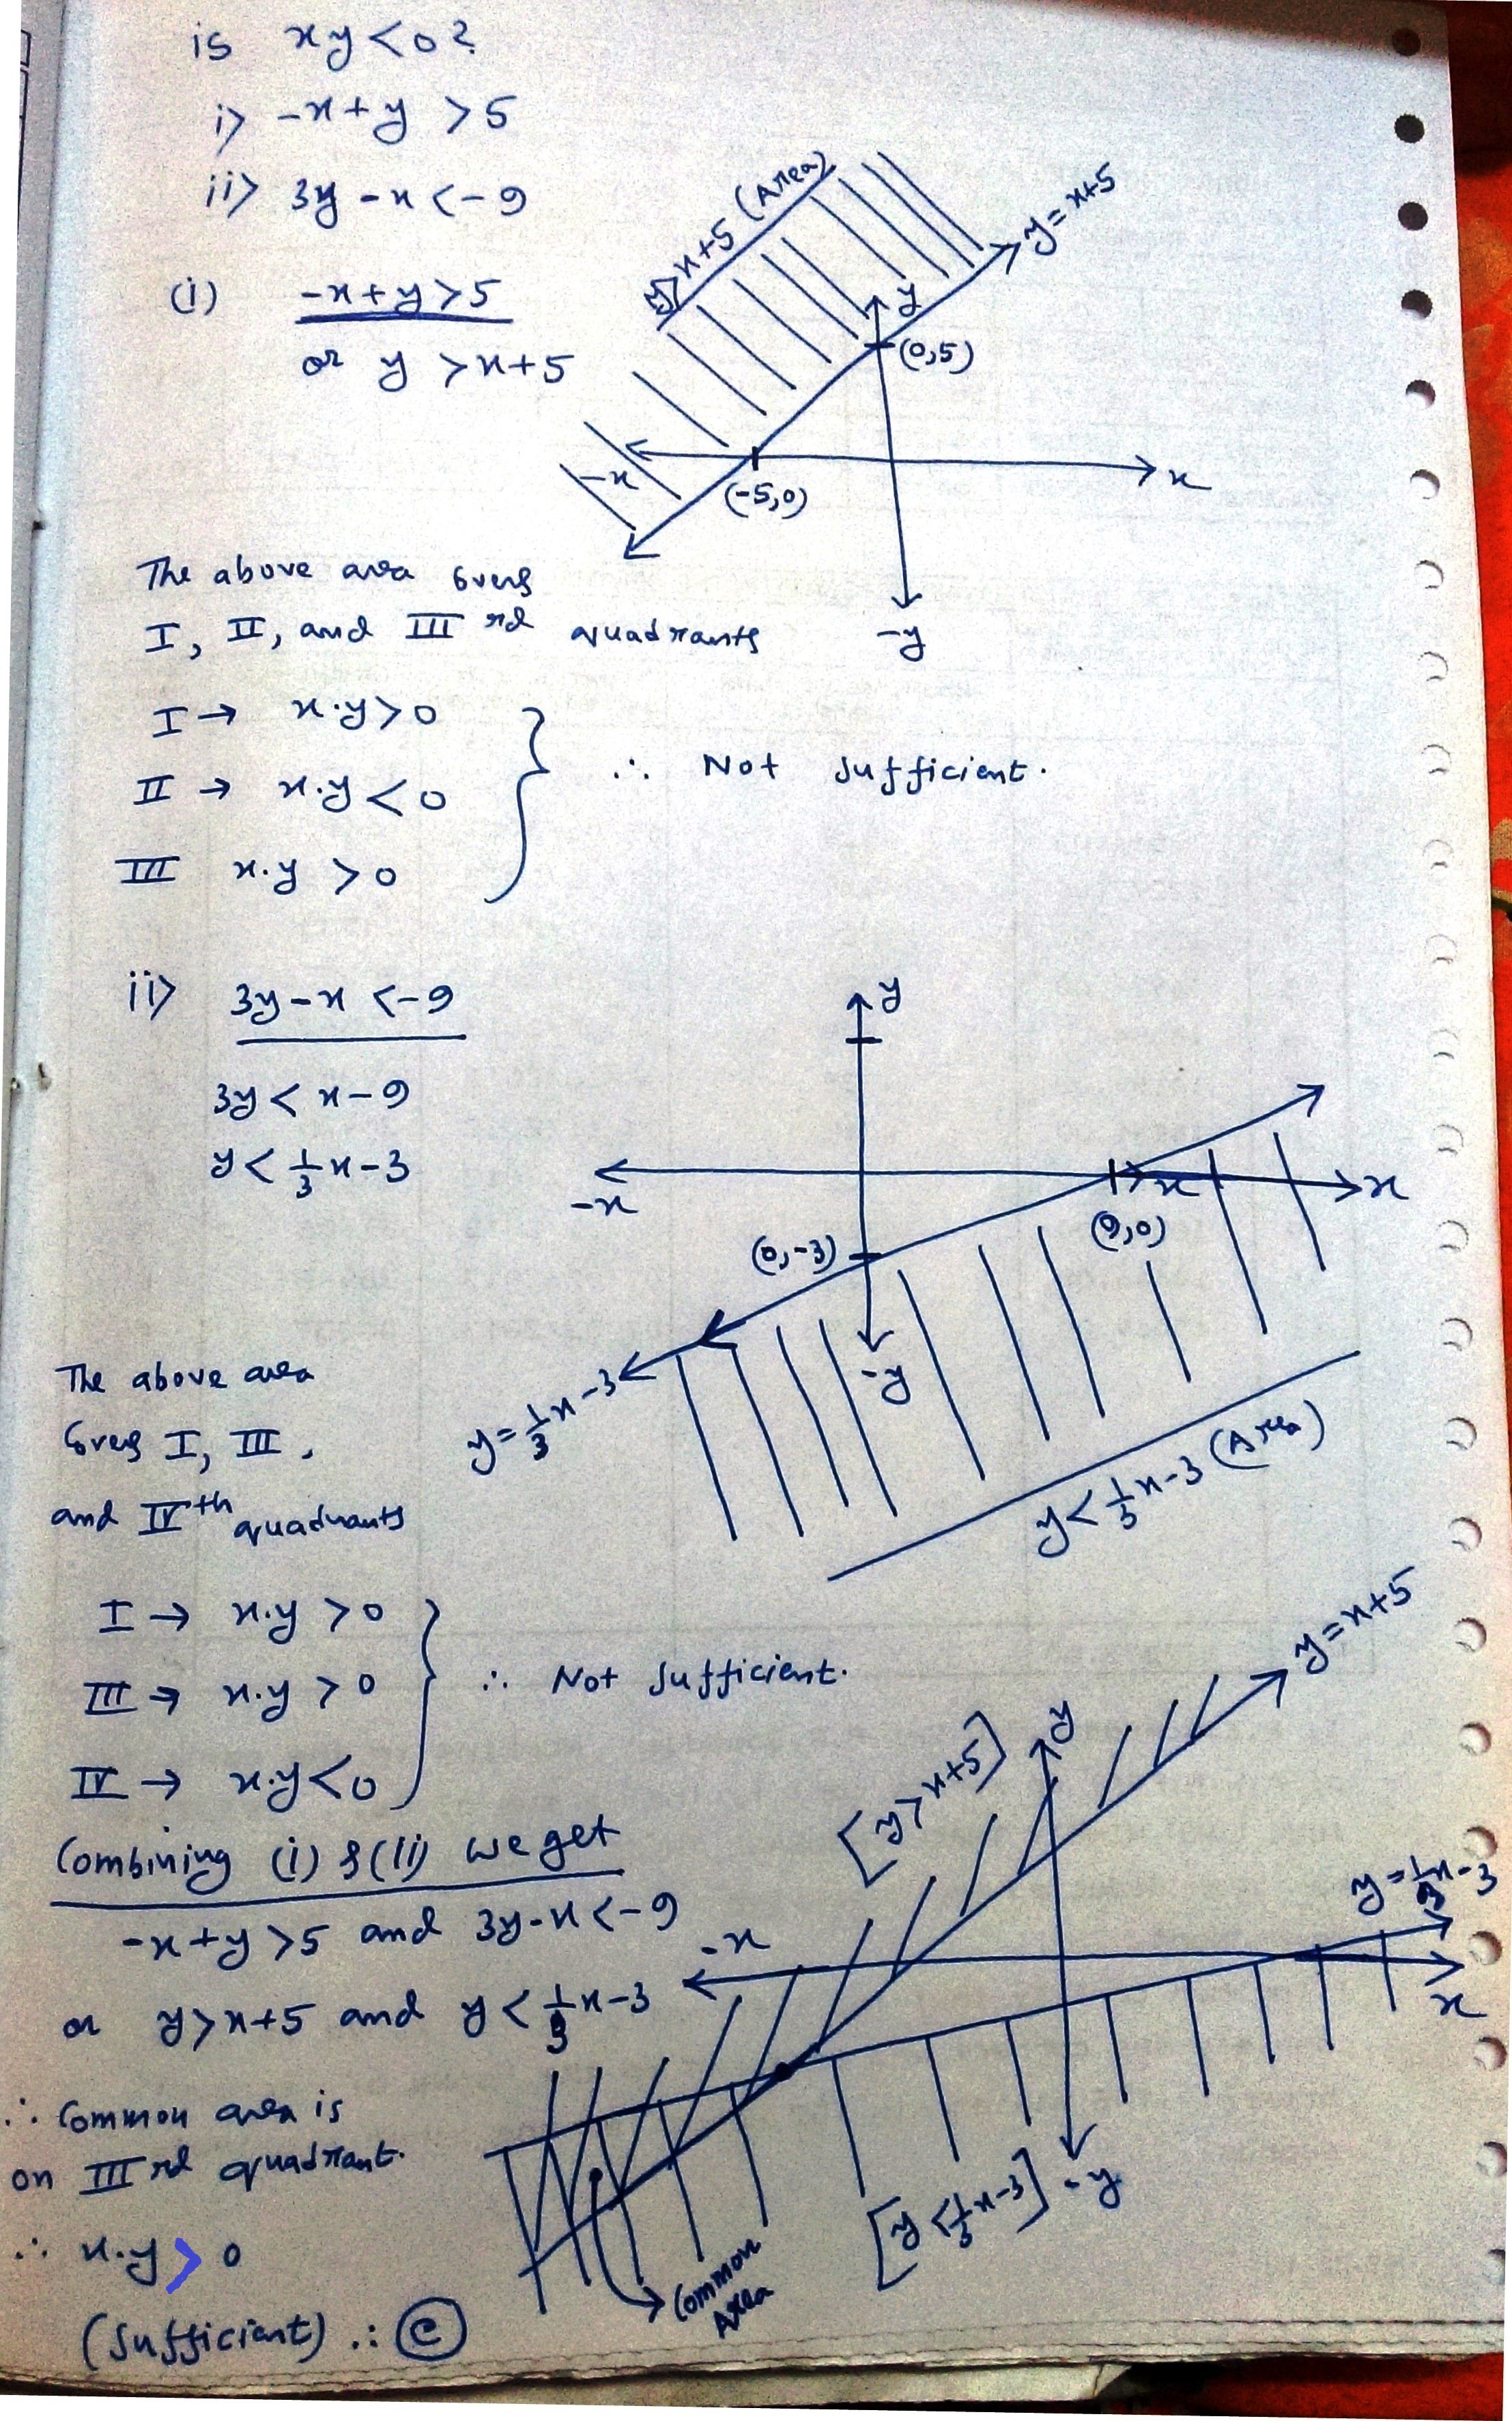 is xy < 0 ?
i> -x+y > 5
ii> 3y - x < -9
(i) -x+y > 5
or y > x+5
y > x+5 (Area)
y = x+5
y
(0,5)
-x
(-5,0)
x
-y
The above area covers
I, II, and III rd quadrants
I → x.y > 0
II → x.y < 0
III x.y > 0
∴ Not sufficient.
ii> 3y - x < -9
3y < x - 9
y < 1/3 x - 3
y
-x
x
x
(0,-3)
(9,0)
-y
y = 1/3 x - 3
y < 1/3 x - 3 (Area)
The above area
covers I, III,
and IV th quadrants
I → x.y > 0
III → x.y > 0
IV → x.y < 0
∴ Not sufficient.
Combining (i) & (ii) we get
-x+y > 5 and 3y-x < -9
or y > x+5 and y < 1/3 x - 3
∴ Common area is
on III rd quadrant.
∴ x.y > 0
(Sufficient) ∴ C
[y > x+5]
y
y = x+5
y = 1/3 x - 3
-x
x
[y < 1/3 x - 3]
-y
Common
Area